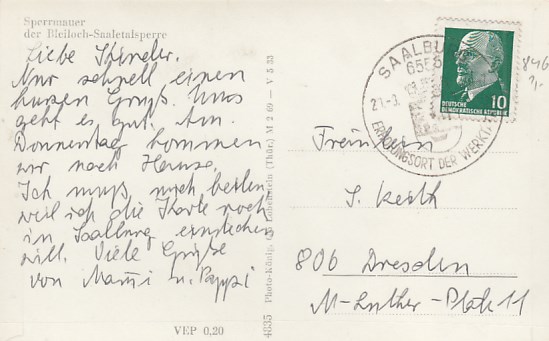 Sperrmauer
der Bleiloch-Saaletalsperre
Liebe Kinder.
Nur schnell einen
kurzen Gruß. Uns
geht es gut. Am
Donnerstag kommen
wir nach Hause.
Ich muß mich beeilen
weil ich die Karte noch
in Saalburg einstecken
will. Viele Grüße
von Mammi u. Pappi
VEP 0,20
4835 Photo-König, Lobenstein (Thür.) M 2 69 - V 5 33
SAALBU
655
21-3.
ERHOLUNGSORT DER WERKT
10
DEUTSCHE
DEMOKRATISCHE REPUBLIK
846
Fräulein
J. Keith
806 Dresden
M-Luther-Platz 11